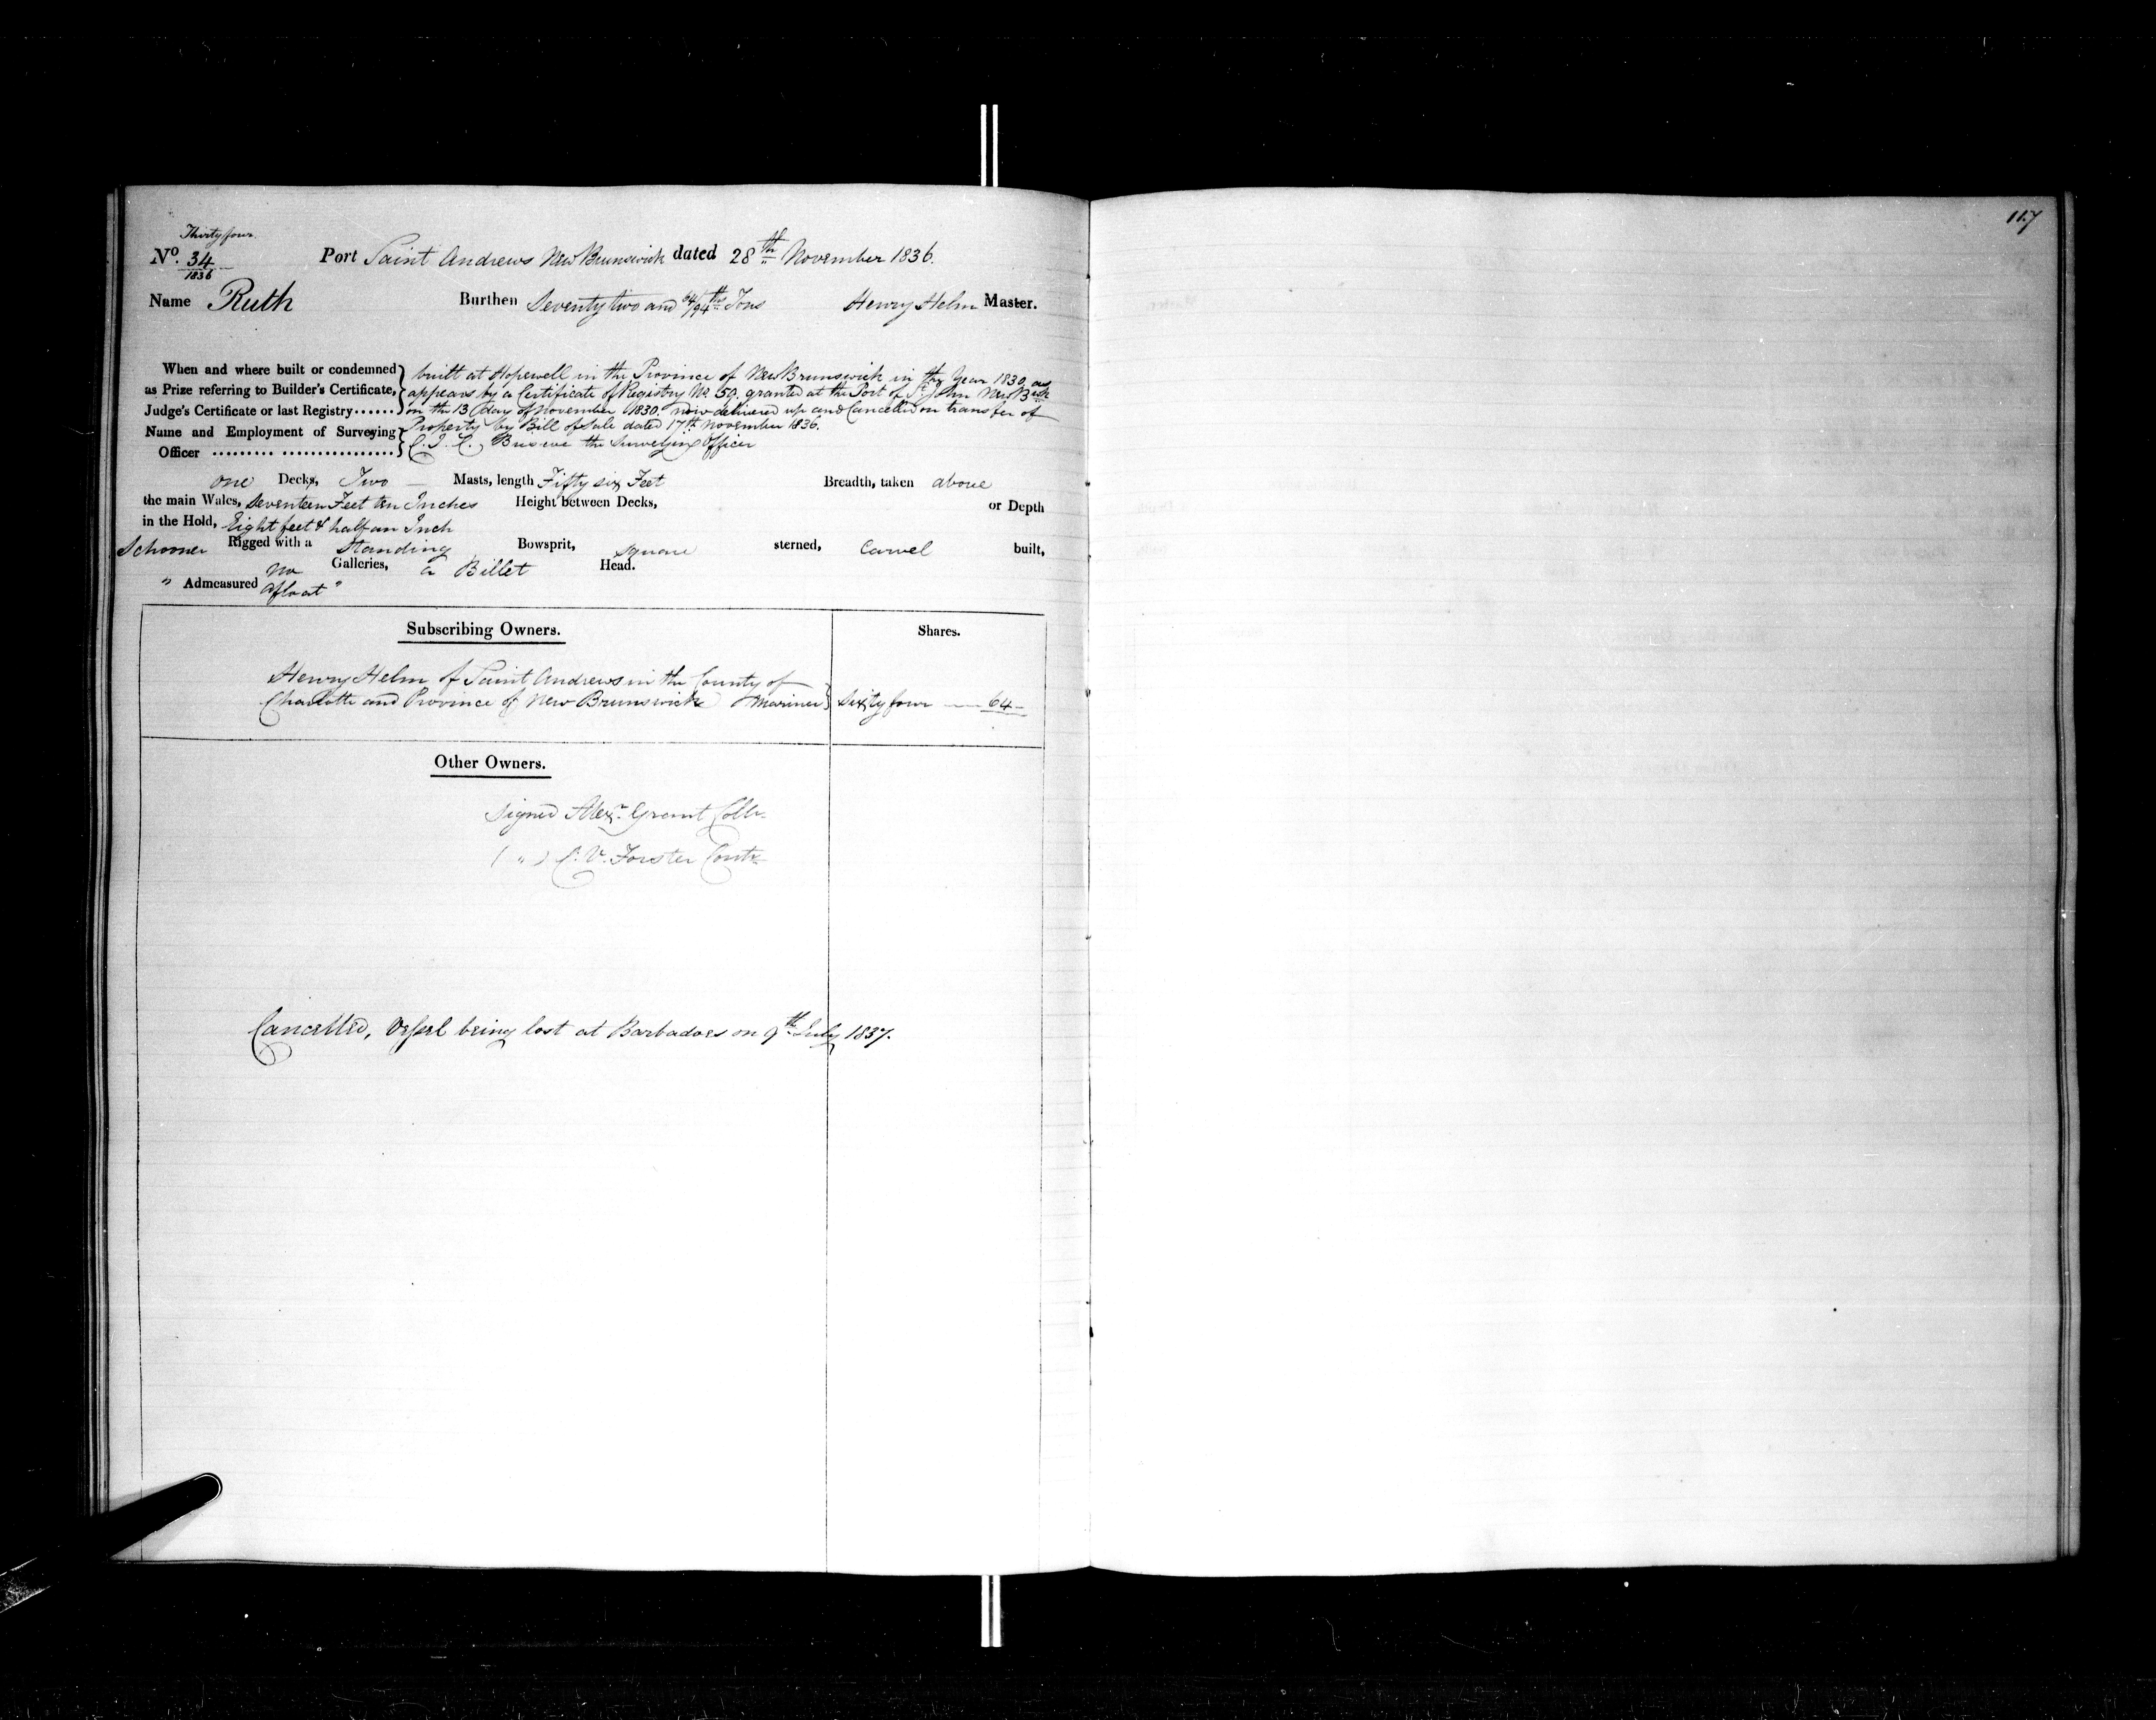 Thirty four
No. 34 Port Saint Andrews New Brunswick dated 28th November 1836.
1836
Name Ruth Burthen Seventy two and 64/94ths Tons Henry Helm Master.
When and where built or condemned
as Prize referring to Builder's Certificate,
Judge's Certificate or last Registry......
built at Hopewell in the Province of New Brunswick in the Year 1830 as
appears by a Certificate of Registry No. 59. granted at the Port of St John New Bwick
on the 13 day of November 1830. now delivered up and Cancelled on transfer of
Property by Bill of Sale dated 17th November 1836.
Name and Employment of Surveying
Officer ......... .................
the Surveying Officer
one Decks, Two Masts, length Fifty six Feet Breadth, taken above
the main Wales, Seventeen Feet ten Inches Height between Decks, or Depth
in the Hold, Eight feet & half an Inch
Schooner Rigged with a Standing Bowsprit, square sterned, Carvel built,
no Galleries, a Billet Head.
" Admeasured afloat "
Subscribing Owners. Shares.
Henry Helm of Saint Andrews in the County of
Charlotte and Province of New Brunswick Mariner Sixty four 64
Other Owners.
Signed Alexr. Grant Collr.
( " ) C. V. Forster Contr
Cancelled, Vessel being lost at Barbadoes on 9th July 1837.
117